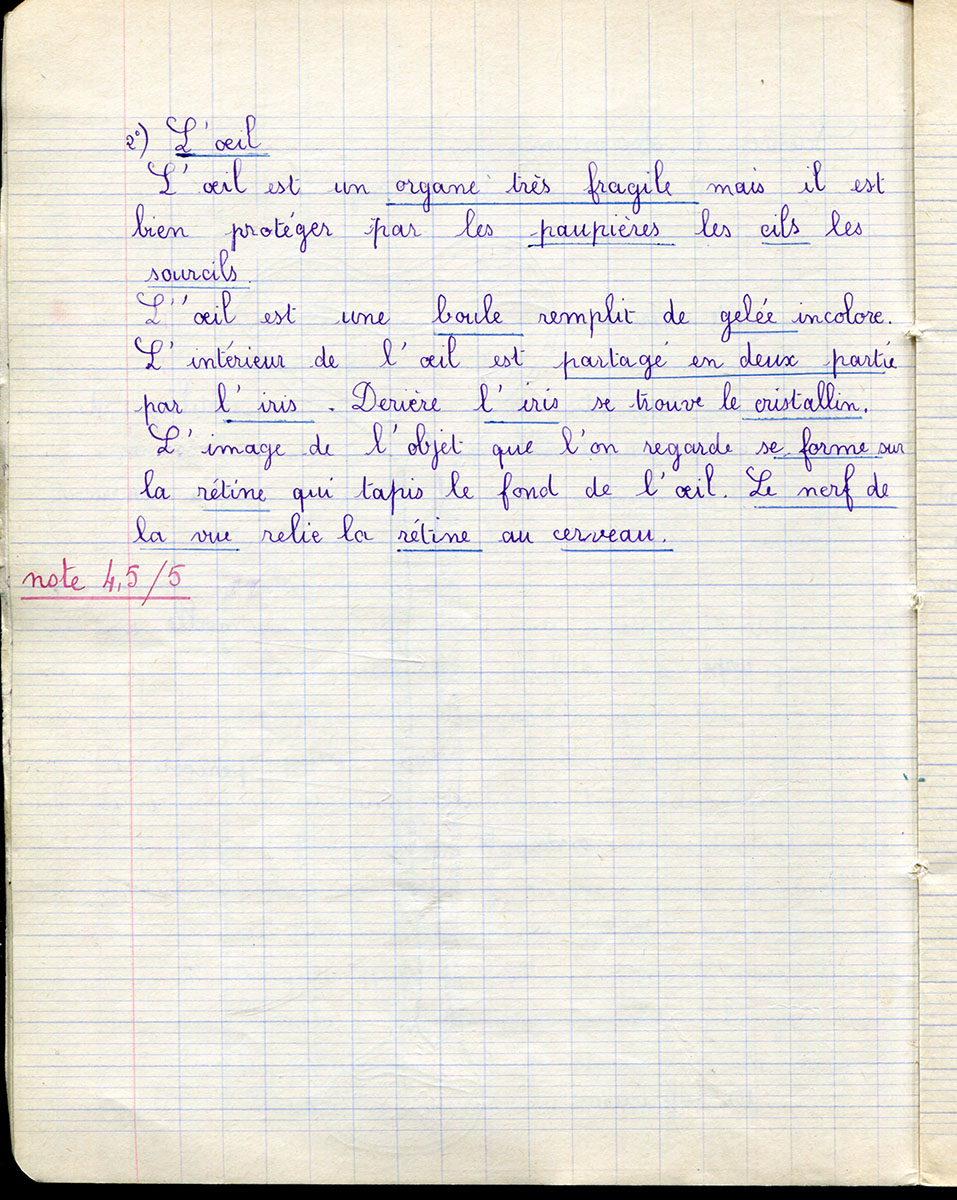 2°) L'œil
L'œil est un organe très fragile mais il est
bien protéger par les paupières les cils les
sourcils.
L'œil est une boule remplit de gelée incolore.
L'intérieur de l'œil est partagé en deux partie
par l'iris. Derière l'iris se trouve le cristallin.
L'image de l'objet que l'on regarde se forme sur
la rétine qui tapis le fond de l'œil. Le nerf de
la vue relie la rétine au cerveau.
note 4,5/5